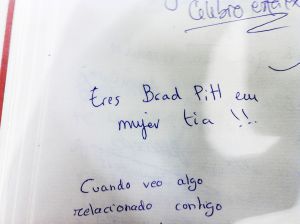 Celebro esta
Eres Brad Pitt en
mujer tia !!.
Cuando veo algo
relacionado contigo